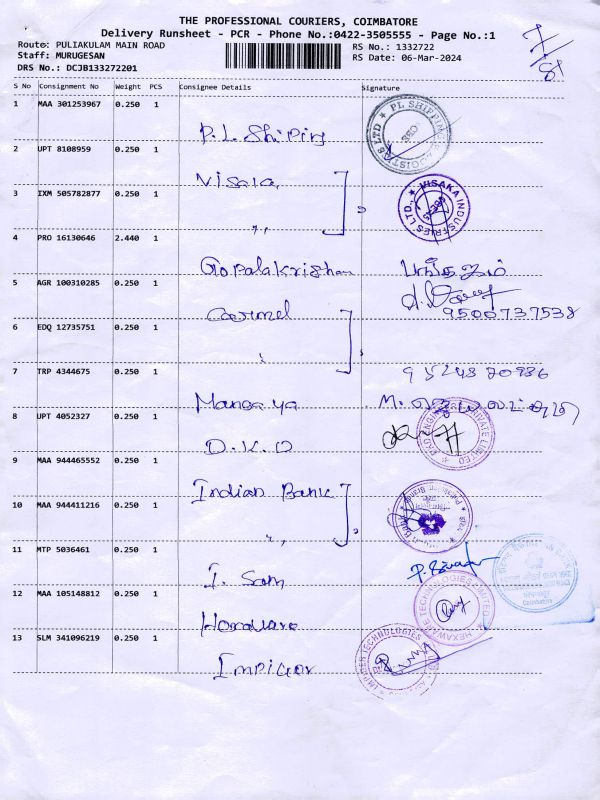 THE PROFESSIONAL COURIERS, COIMBATORE
Delivery Runsheet - PCR - Phone No.:0422-3505555 - Page No.:1
Route: PULIAKULAM MAIN ROAD
RS No.: 1332722
Staff: MURUGESAN
RS Date: 06-Mar-2024
DRS No.: DCJB133272201
S No Consignment No Weight PCS Consignee Details Signature
1 MAA 301253967 0.250 1
P.L. Shiping
2 UPT 8108959 0.250 1
Visaka
3 IXM 505782877 0.250 1
VISAKA INDUSTRIES LTD.,
4 PRO 16130646 2.440 1
Gopalakrishan
5 AGR 100310285 0.250 1
9500737538
Carmel
6 EDQ 12735751 0.250 1
7 TRP 4344675 0.250 1
Mangaya M.
8 UPT 4052327 0.250 1
D.K.D
9 MAA 944465552 0.250 1
Indian Bank
10 MAA 944411216 0.250 1
11 MTP 5036461 0.250 1
12 MAA 105148812 0.250 1
HEXAWARE TECHNOLOGIES LIMITED
13 SLM 341096219 0.250 1
Impiger